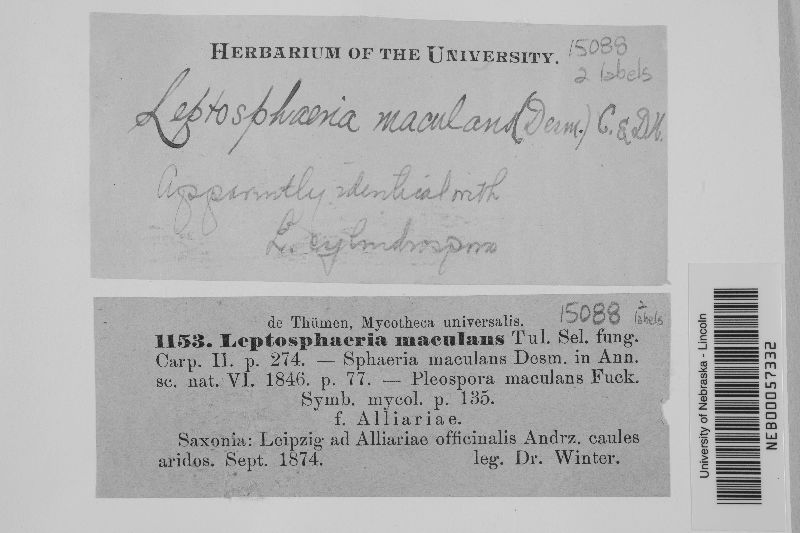 HERBARIUM OF THE UNIVERSITY. 15088
2 labels
Leptosphaeria maculans (Desm.) C. & D.N.
Apparently identical with
L. cylindrospora
de Thümen, Mycotheca universalis. 15088 2 labels
1153. Leptosphaeria maculans Tul. Sel. fung.
Carp. II. p. 274. — Sphaeria maculans Desm. in Ann.
sc. nat. VI. 1846. p. 77. — Pleospora maculans Fuck.
Symb. mycol. p. 135.
f. Alliariae.
Saxonia: Leipzig ad Alliariae officinalis Andrz. caules
aridos. Sept. 1874. leg. Dr. Winter.
University of Nebraska - Lincoln
NEB00057332